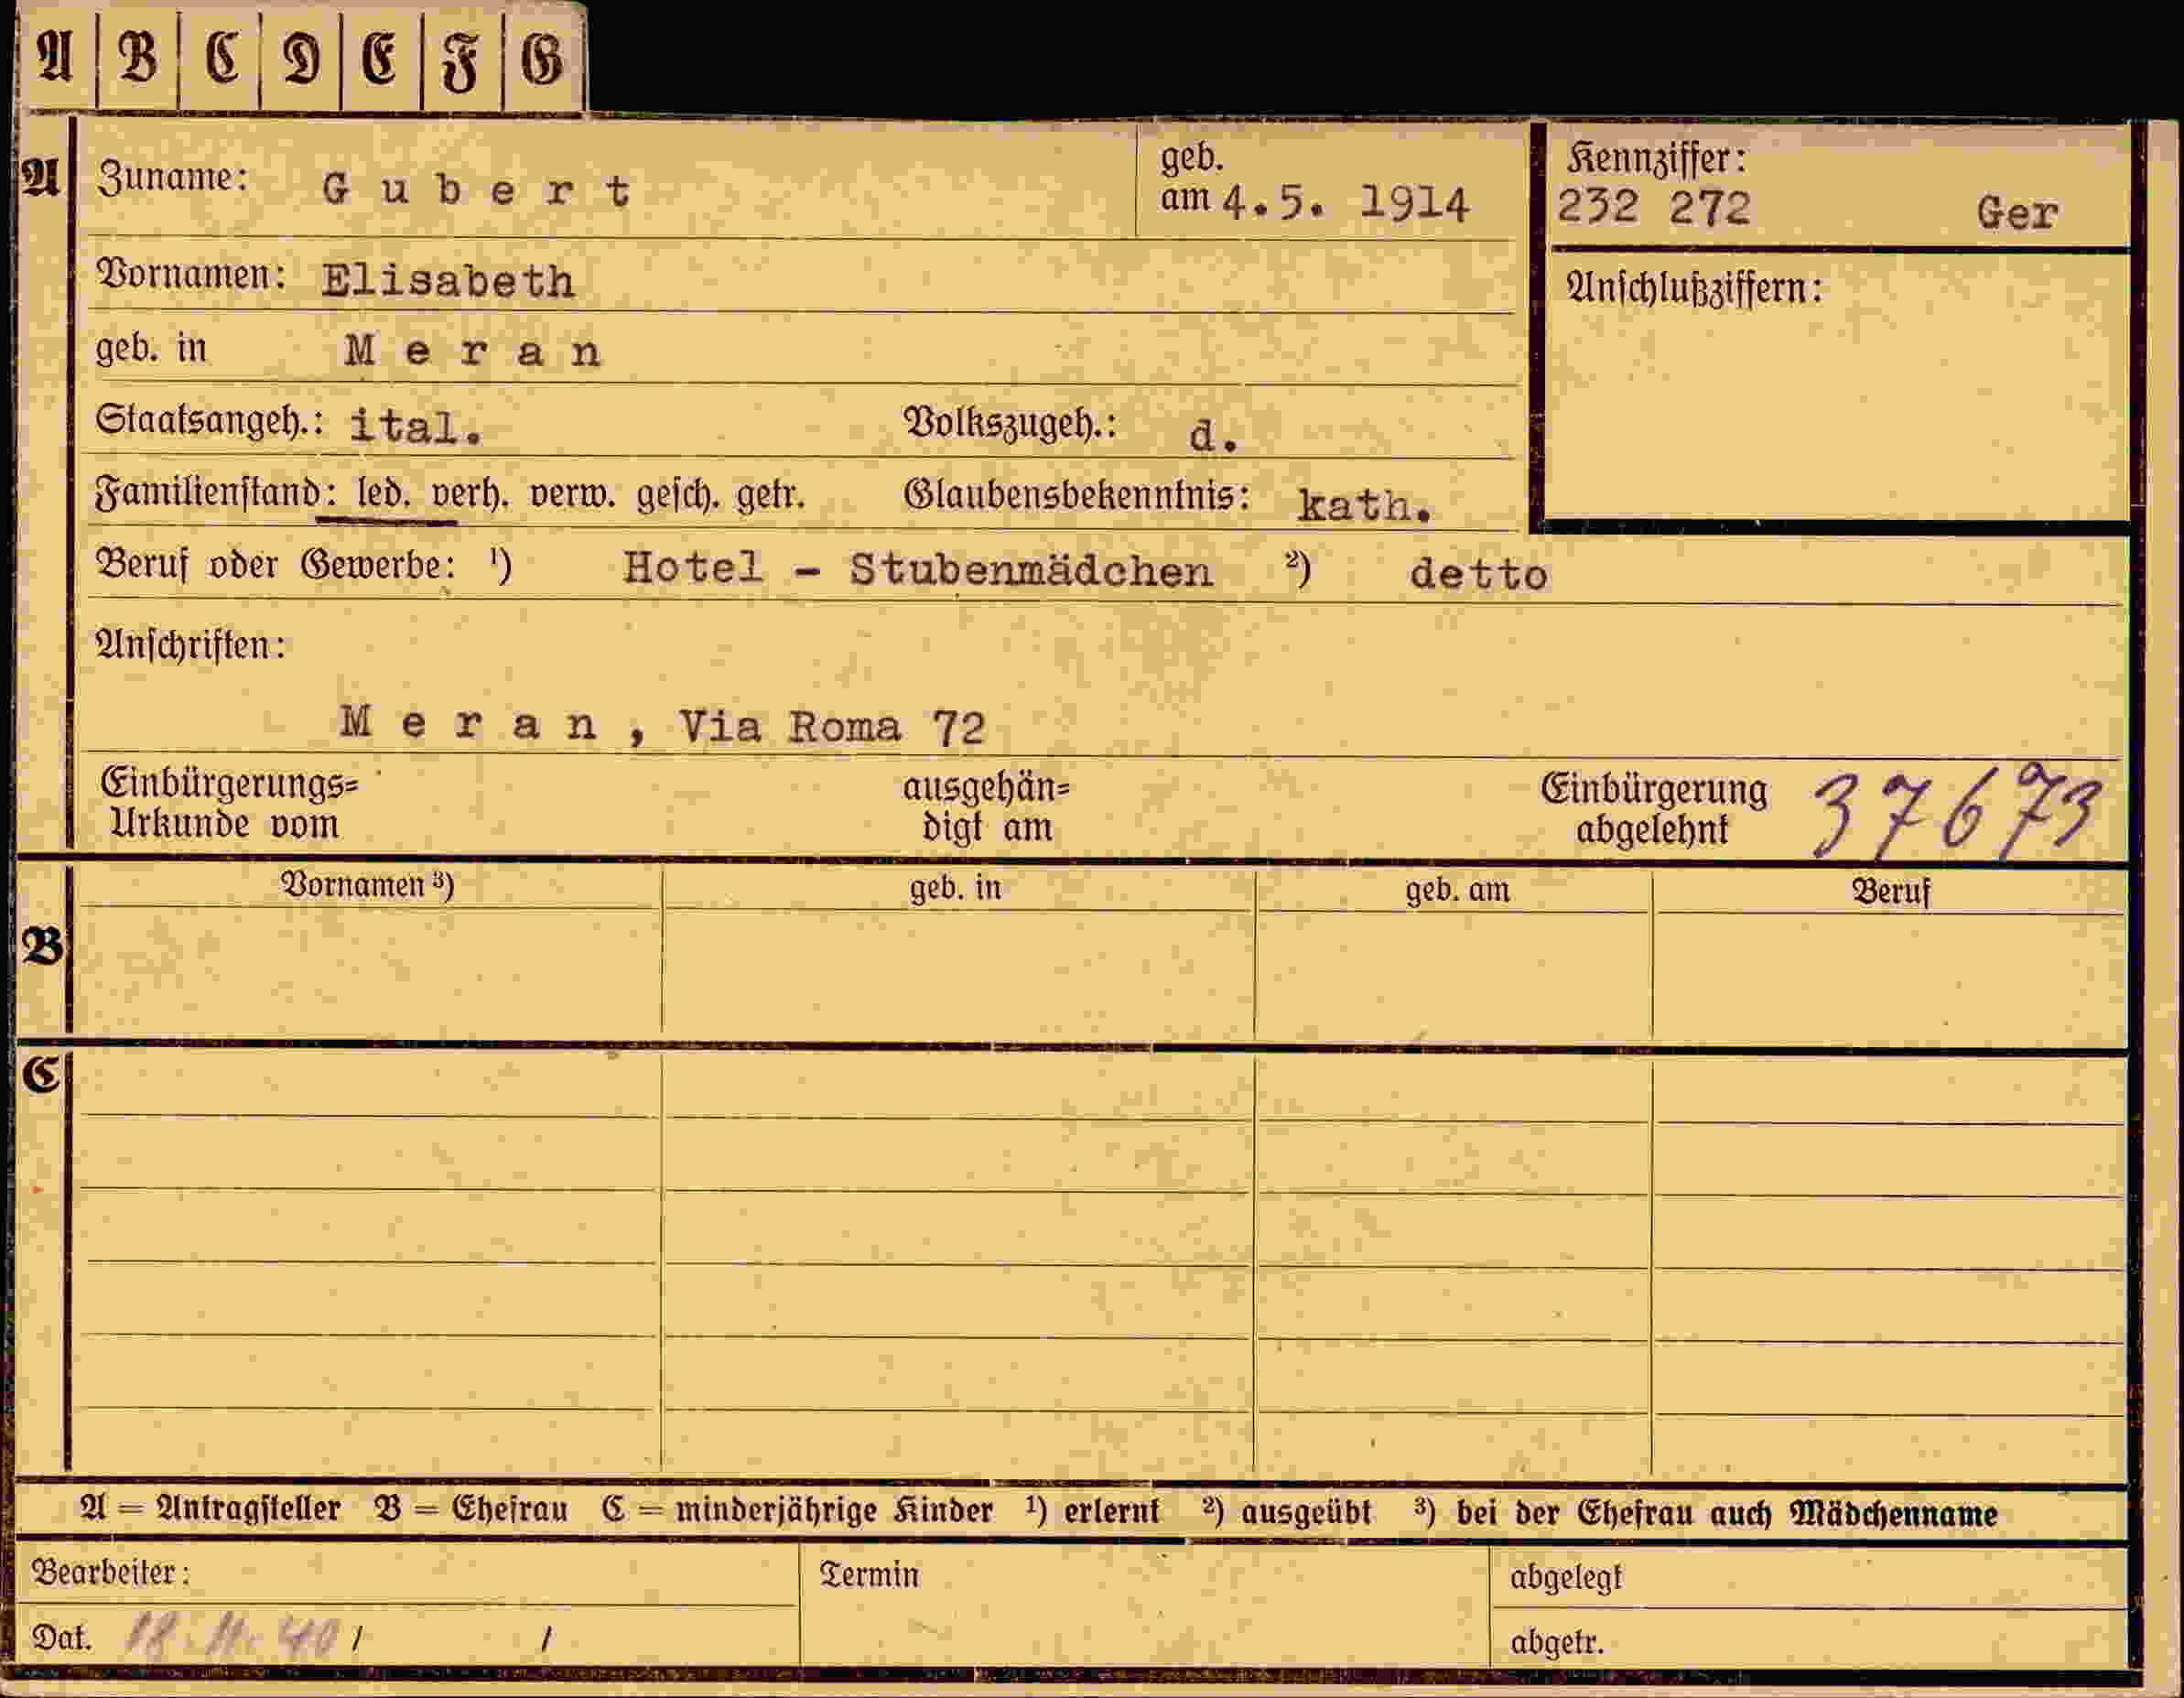 A B C D E F G
A Zuname: Gubert geb. am 4.5. 1914 Kennziffer: 232 272 Ger
Vornamen: Elisabeth Anschlußziffern:
geb. in Meran
Staatsangeh.: ital. Volkszugeh.: d.
Familienstand: led. verh. verw. gesch. getr. Glaubensbekenntnis: kath.
Beruf oder Gewerbe: ¹) Hotel - Stubenmädchen ²) detto
Anschriften:
Meran, Via Roma 72
Einbürgerungs= ausgehän= Einbürgerung 37673
Urkunde vom digt am abgelehnt
Vornamen ³) geb. in geb. am Beruf
B
C
A = Antragsteller B = Ehefrau C = minderjährige Kinder ¹) erlernt ²) ausgeübt ³) bei der Ehefrau auch Mädchenname
Bearbeiter: Termin abgelegt
Dat. 18.11.40 / / abgetr.